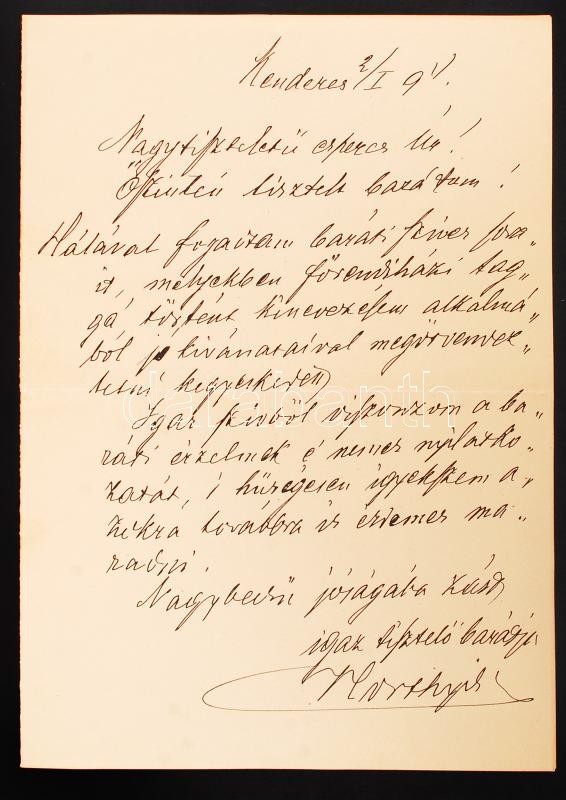 Kenderes 2/I 91.
Nagytiszteletü esperes úr!
Őszintén tisztelt barátom!
Hálával fogadtam baráti szíves sora„
it, melyekben főrendiházi tag„
gá, történt kinevezésem alkalmá„
ból jó kivánataival megörvendez„
tetni kegyeskedett
Igaz szivből viszonzom a ba„
ráti érzelmek é nemes nyilatko„
zatát, s hűségesen igyekszem a„
zokra továbbra is érdemes ma„
radni.
Nagybecsü jóságába zárt
igaz tisztelő barátja
Horthy
darabanth